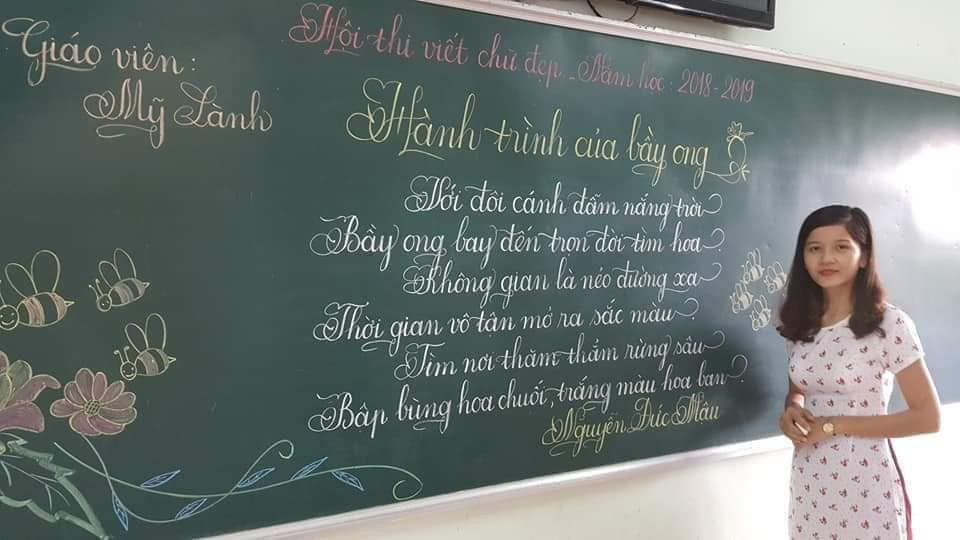 Giáo viên:
Mỹ Lành
Hội thi viết chữ đẹp - Năm học: 2018 - 2019
Hành trình của bầy ong
Với đôi cánh đẫm nắng trời
Bầy ong bay đến trọn đời tìm hoa.
Không gian là nẻo đường xa
Thời gian vô tận mở ra sắc màu.
Tìm nơi thăm thẳm rừng sâu
Bập bùng hoa chuối, trắng màu hoa ban.
Nguyễn Đức Mậu